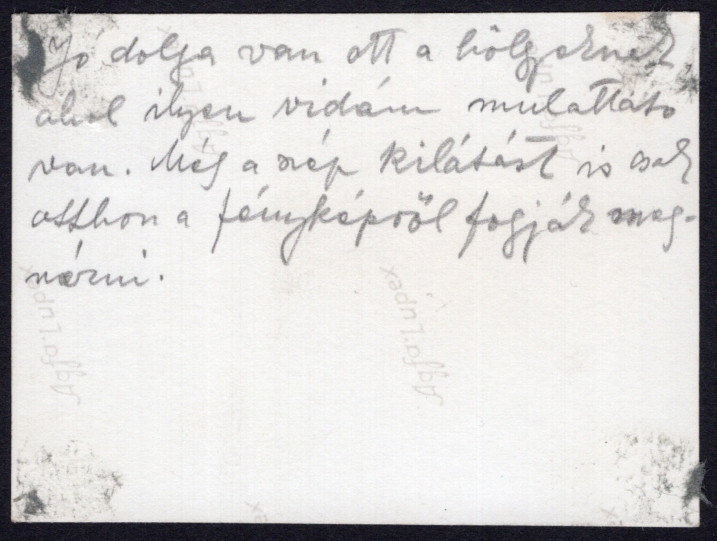 Jó dolga van ott a hölgyeknek,
ahol ilyen vidám mulattató
van. Még a szép kilátást is csak
otthon a fényképről fogják meg-
nézni.
Agfa-Lupex
Agfa-Lupex